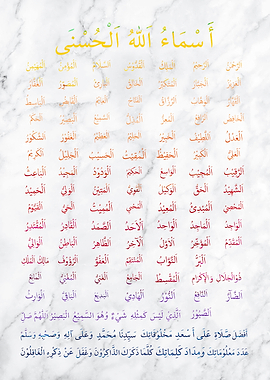 أَسْمَاءُ اللهُ الْحُسْنَى
الرَّحْمَنُ الرَّحِيمُ الْمَلِكُ الْقُدُّوسُ السَّلَامُ الْمُؤْمِنُ الْمُهَيْمِنُ
الْعَزِيزُ الْجَبَّارُ الْمُتَكَبِّرُ الْخَالِقُ الْبَارِئُ الْمُصَوِّرُ الْغَفَّارُ
الْقَهَّارُ الْوَهَّابُ الرَّزَّاقُ الْفَتَّاحُ الْعَلِيمُ الْقَابِضُ الْبَاسِطُ
الْخَافِضُ الرَّافِعُ الْمُعِزُّ الْمُذِلُّ السَّمِيعُ الْبَصِيرُ الْحَكَمُ
الْعَدْلُ اللَّطِيفُ الْخَبِيرُ الْحَلِيمُ الْعَظِيمُ الْغَفُورُ الشَّكُورُ
الْعَلِيُّ الْكَبِيرُ الْحَفِيظُ الْمُقِيتُ الْحَسِيبُ الْجَلِيلُ الْكَرِيمُ
الرَّقِيبُ الْمُجِيبُ الْوَاسِعُ الْحَكِيمُ الْوَدُودُ الْمَجِيدُ الْبَاعِثُ
الشَّهِيدُ الْحَقُّ الْوَكِيلُ الْقَوِيُّ الْمَتِينُ الْوَلِيُّ الْحَمِيدُ
الْمُحْصِي الْمُبْدِئُ الْمُعِيدُ الْمُحْيِي الْمُمِيتُ الْحَيُّ الْقَيُّومُ
الْوَاجِدُ الْمَاجِدُ الْوَاحِدُ الْأَحَدُ الصَّمَدُ الْقَادِرُ الْمُقْتَدِرُ
الْمُقَدِّمُ الْمُؤَخِّرُ الْأَوَّلُ الْآخِرُ الظَّاهِرُ الْبَاطِنُ الْوَالِي
الْبَرُّ التَّوَّابُ الْمُنْتَقِمُ الْعَفُوُّ الرَّؤُوفُ مَالِكُ الْمُلْكِ
ذُوالْجَلَالِ وَالْإِكْرَامِ الْمُقْسِطُ الْجَامِعُ الْغَنِيُّ الْمُغْنِي الْمَانِعُ
الضَّارُّ النَّافِعُ النُّورُ الْهَادِي الْبَدِيعُ الْبَاقِي الْوَارِثُ
الصَّبُورُ الَّذِي لَيْسَ كَمِثْلِهِ شَيْءٌ وَهُوَ السَّمِيعُ الْبَصِيرُ اللَّهُمَّ صَلِّ
أَفْضَلَ صَلَاةٍ عَلَى أَسْعَدِ مَخْلُوقَاتِكَ سَيِّدِنَا مُحَمَّدٍ وَعَلَى آلِهِ وَصَحْبِهِ وَسَلِّمْ
عَدَدَ مَعْلُومَاتِكَ وَمِدَادَ كَلِمَاتِكَ كُلَّمَا ذَكَرَكَ الذَّاكِرُونَ وَغَفَلَ عَنْ ذِكْرِهِ الْغَافِلُونَ